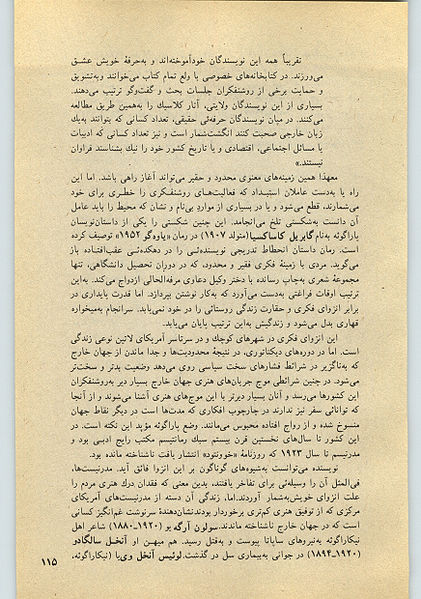 تقریباً همه این نویسندگان خودآموخته‌اند و به‌حرفهٔ خویش عشق
می‌ورزند. در کتابخانه‌های خصوصی با ولع تمام کتاب می‌خوانند وبه‌تشویق
و حمایت برخی از روشنفکران جلسات بحث و گفت‌وگو ترتیب می‌دهند.
بسیاری از این نویسندگان ولایتی، آثار کلاسیك را به‌همین طریق مطالعه
می‌کنند. در میان نویسندگان حرفه‌ئی حقیقی، تعداد کسانی که بتوانند به‌یك
زبان خارجی صحبت کنند انگشت‌شمار است و نیز تعداد کسانی که ادبیات
یا مسائل اجتماعی، اقتصادی و یا تاریخ کشور خود را نیك بشناسند فراوان
نیستند.»
معهذا همین زمینه‌های معنوی محدود و حقیر می‌تواند آغاز راهی باشد. اما این
راه یا به‌دست عاملان استبداد که فعالیت‌های روشنفکری را خطری برای خود
می‌شمارند، قطع می‌شود و یا در بسیاری از موارد بی‌نام و نشان که محیط را باید عامل
آن دانست به‌شکستی تلخ می‌انجامد. این چنین شکستی را یکی از داستان‌نویسان
پاراگوئه به‌نام گابریل کاساکسیا (متولد ۱۹۰۷) در رمان «یاووگر ۱۹۵۲» توصیف کرده
است. رمان داستان انحطاط تدریجی نویسنده‌ئی را در دهکده‌ئی عقب‌افتاده باز
می‌گوید. مردی با زمینهٔ فکری فقیر و محدود، که در دوران تحصیل دانشگاهی، تنها
مجموعهٔ شعری به‌چاپ رسانده با دختر وکیل دعاوی مرفه‌الحالی ازدواج می‌کند. به‌این
ترتیب اوقات فراغتی به‌دست می‌آورد که به‌کار نوشتن بپردازد. اما قدرت پایداری در
برابر انزوای فکری و حقارت زندگی روستائی را در خود نمی‌یابد. سرانجام به‌میخواره
قهاری بدل می‌شود و زندگیش به‌این ترتیب پایان می‌یابد.
این انزوای فکری در شهرهای کوچك و در سرتاسر آمریکای لاتین نوعی زندگی
است. اما در دوره‌های دیکتاتوری، در نتیجهٔ محدودیت‌ها و جدا ماندن از جهان خارج
که به‌ناگزیر در شرائط فشارهای سخت سیاسی روی می‌دهد وضعیت بدتر و سخت‌تر
می‌شود. در چنین شرائطی موج جریان‌های هنری جهان خارج بسیار دیر به‌روشنفکران
این کشورها می‌رسد و آنان بسیار دیرتر با این موج‌های هنری آشنا می‌شوند و از آنجا
که توانائی سفر نیز ندارند در چارچوب افکاری که مدت‌ها است در دیگر نقاط جهان
منسوخ شده و از رواج افتاده محبوس می‌مانند. وضع پاراگوئه مؤید این نکته است. در
این کشور تا سال‌های نخستین قرن بیستم سبك رمانتیسم مکتب رایج ادبی بود و
مدرنیسم تا سال ۱۹۲۳ که روزنامهٔ «خوونتود» انتشار یافت ناشناخته مانده بود.
نویسنده می‌توانست به‌شیوه‌های گوناگون بر این انزوا فائق آید. مدرنیست‌ها،
فی‌المثل آن را وسیله‌ئی برای تفاخر یافتند، بدین معنی که فقدان درك هنری مردم را
علت انزوای خویش‌به‌شمار آوردند.اما، زندگی آن دسته از مدرنیست‌های آمریکای
مرکزی که از توفیق هنری کم‌تری برخوردار بودندنشان‌دهندهٔ سرنوشت غم‌انگیز کسانی
است که در جهان خارج ناشناخته ماندند. سولون آرگه یو (۱۹۲۰-۱۸۸۰) شاعر اهل
نیکاراگوئه به‌نیروهای ساپاتا پیوست و به‌قتل رسید. هم میهن او آنخل سالگادو
(۱۹۲۰-۱۸۹۴) در جوانی به‌بیماری سل در گذشت. لوئیس آنخل ویا (نیکاراگوئه،
۱۱۵